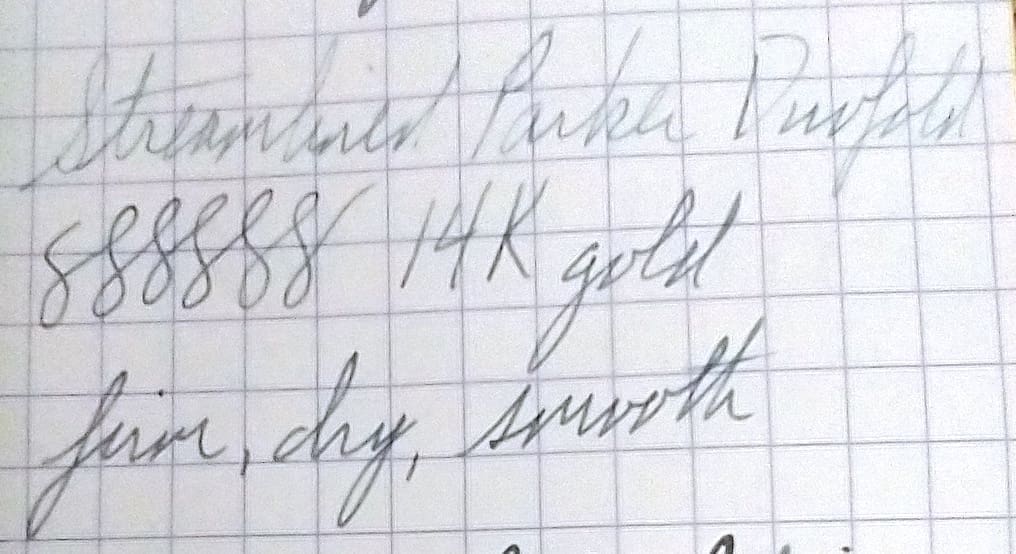 Streamlined Parker Duofold
888888 14K gold
firm, dry, smooth